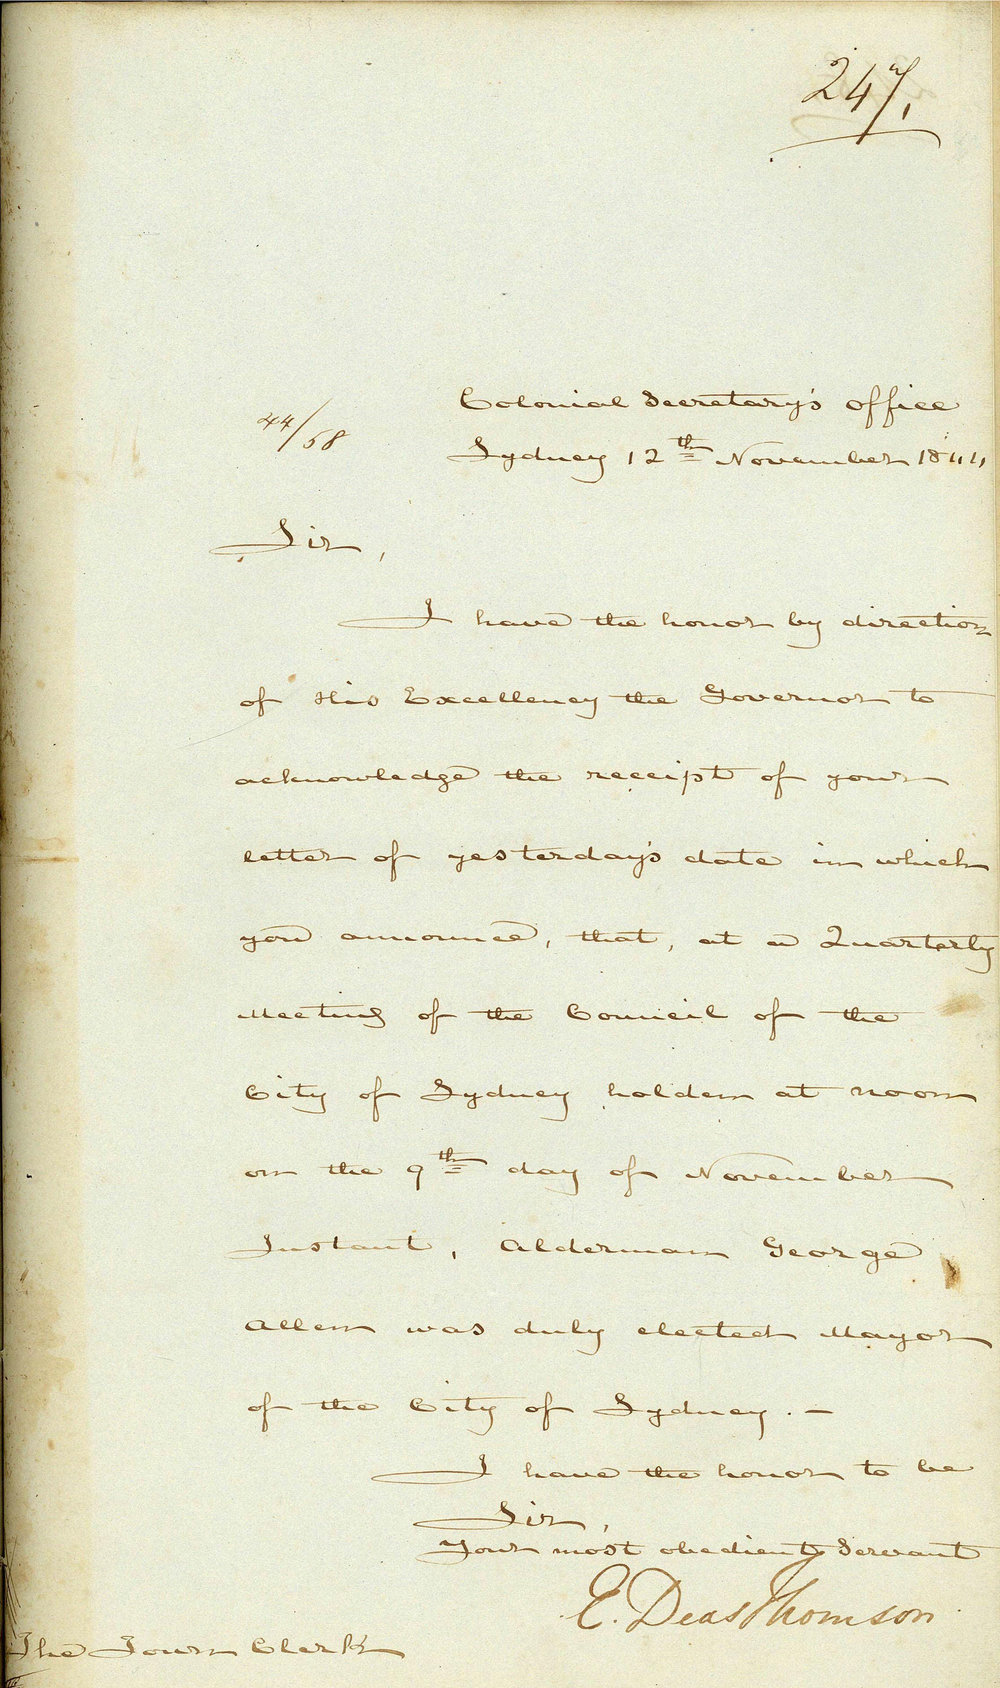 247.
Colonial Secretary's Office
44/58
Sydney 12th November 1844
Sir,
I have the honor by direction
of His Excellency the Governor to
acknowledge the receipt of your
letter of yesterday's date in which
you announce, that, at a Quarterly
Meeting of the Council of the
City of Sydney holden at noon
on the 9th day of November
Instant, Alderman George
Allen was duly elected Mayor
of the City of Sydney. —
I have the honor to be
Sir,
Your most obedient Servant
E. Deas Thomson
The Town Clerk